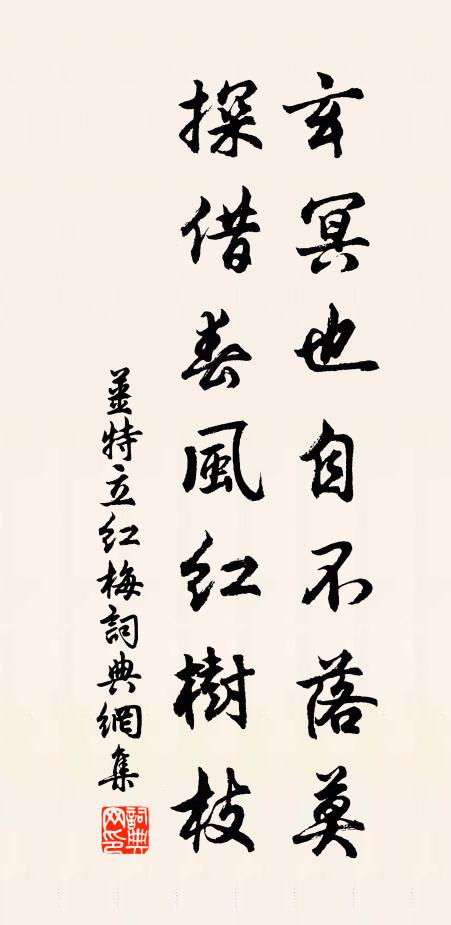 玄冥也自不落莫
探借春風紅樹枝
姜特立紅梅詞典網集
詞典網印